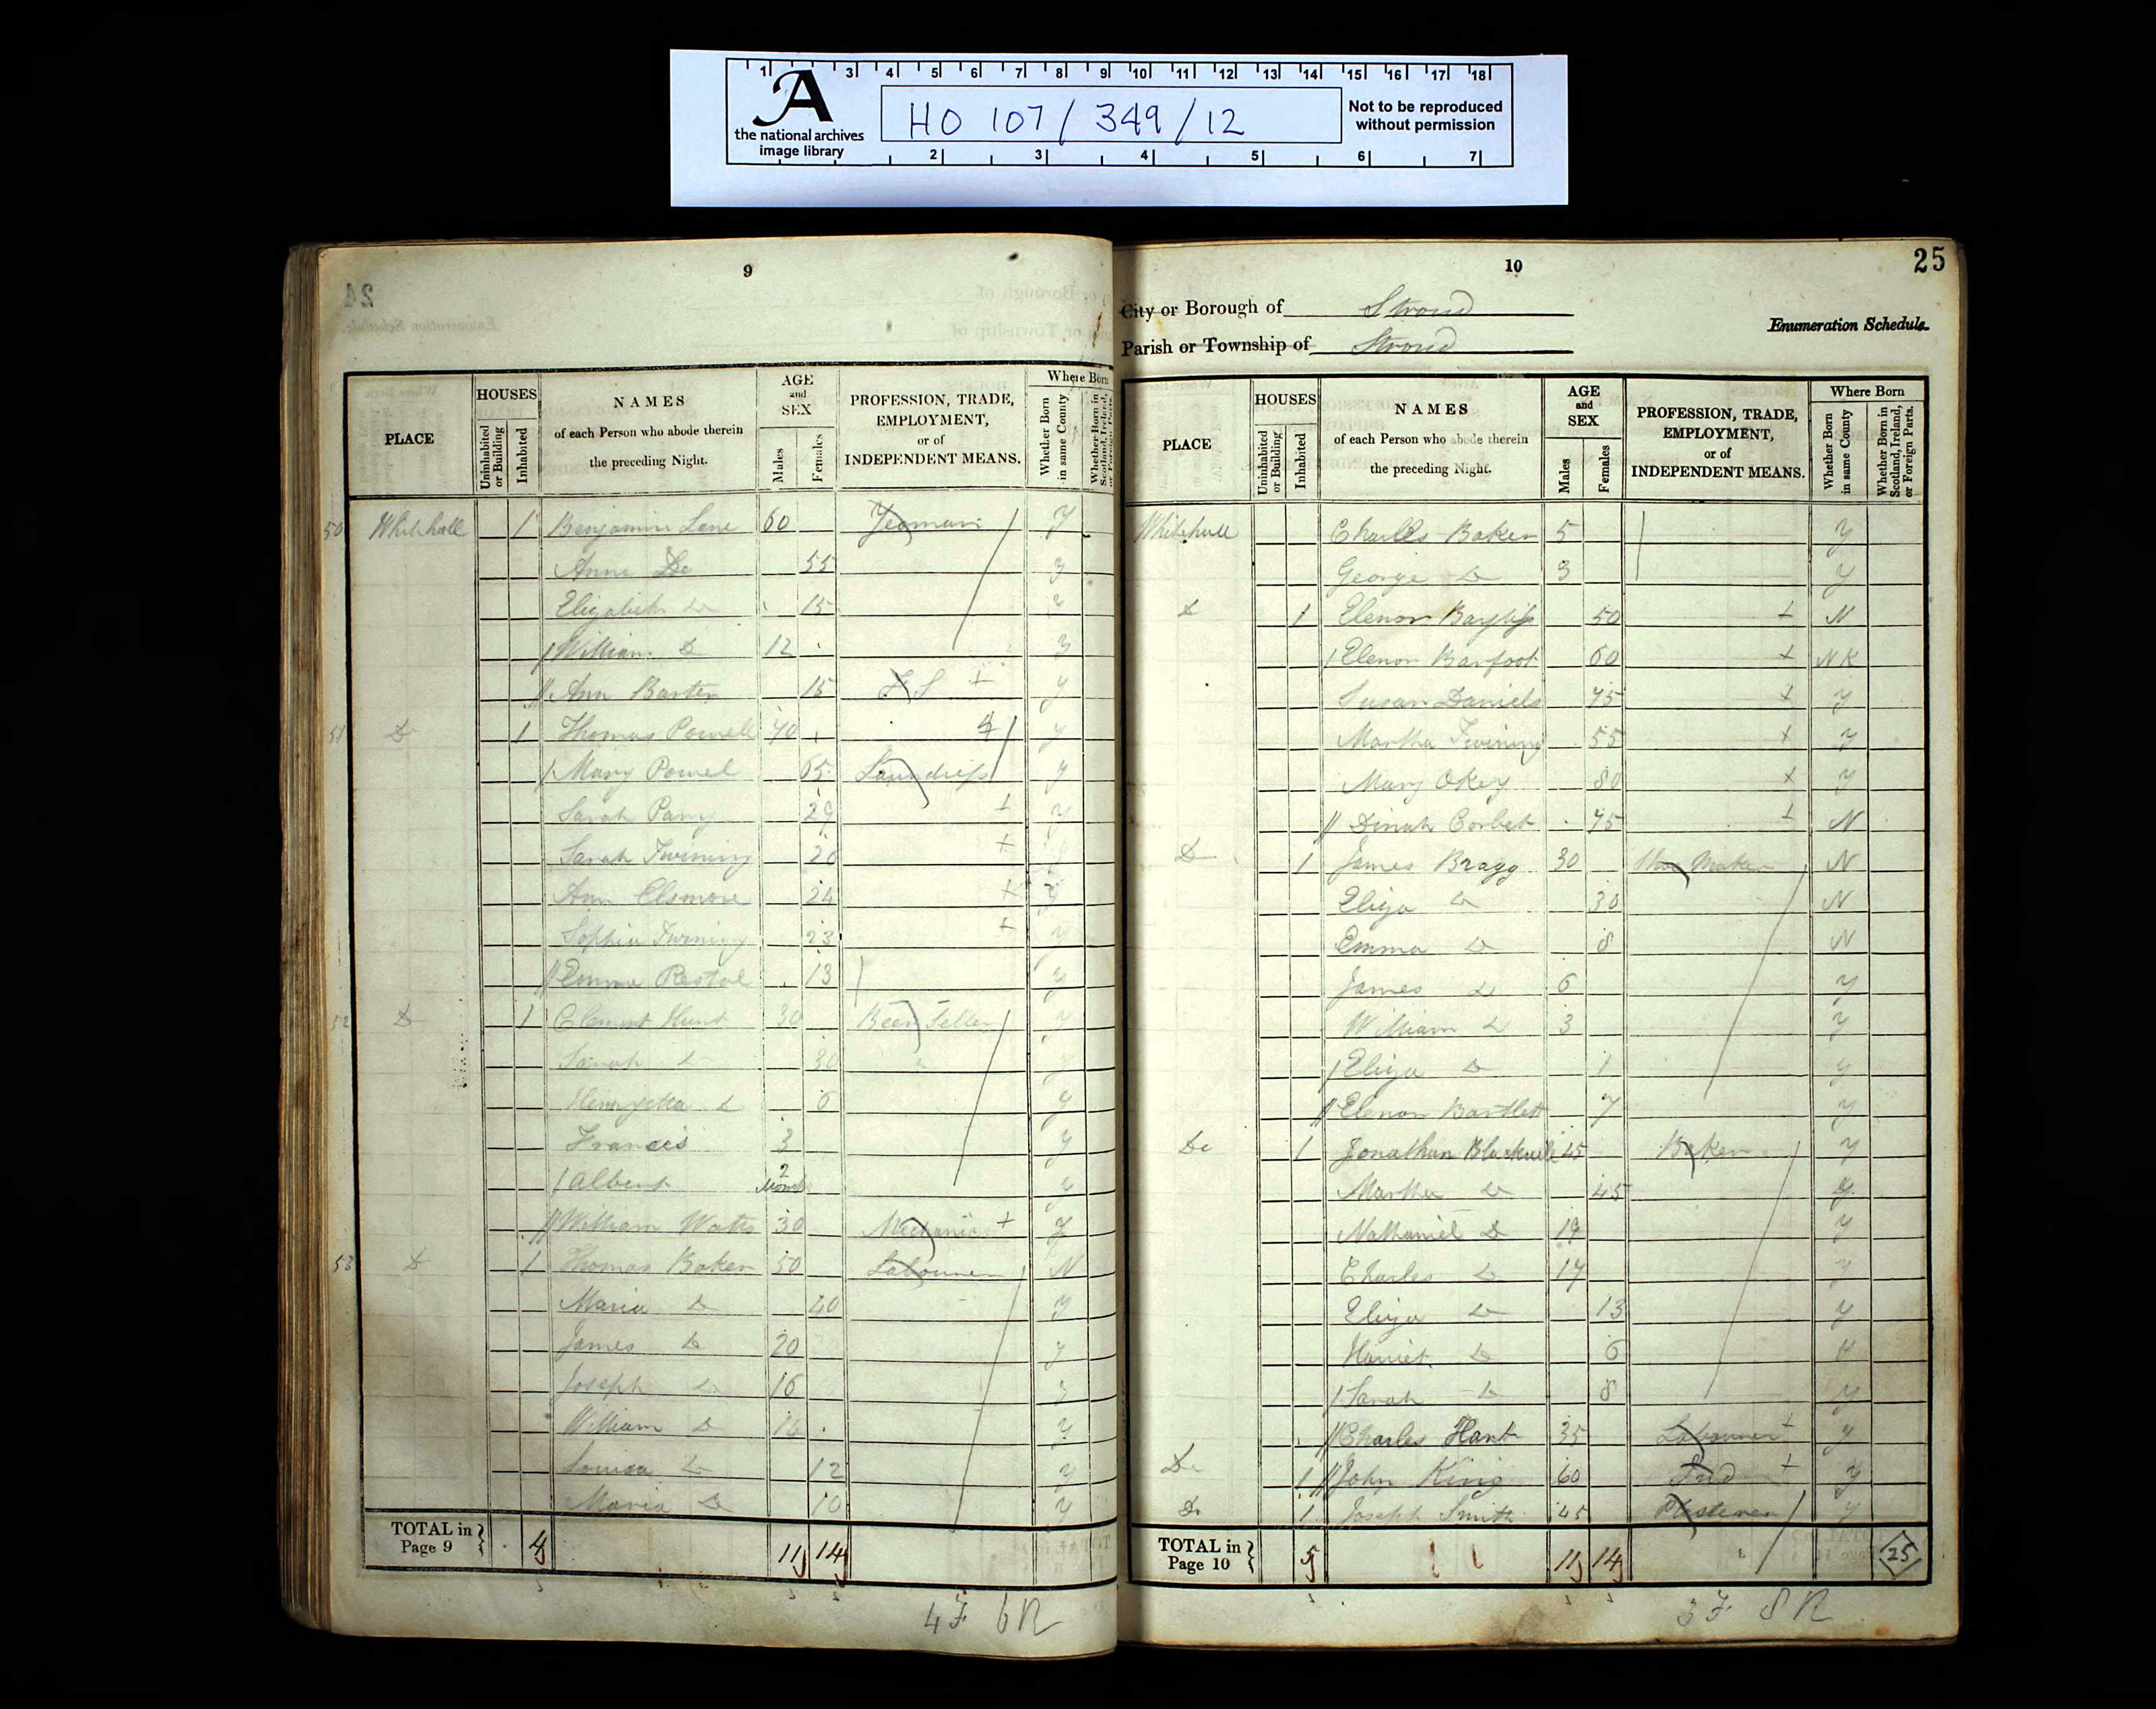 1 3 4 5 6 7 8 9 10 11 12 13 14 15 16 17 18
A
the national archives
image library
HO 107/349/12
Not to be reproduced
without permission
2 3 4 5 6 7
9
24
HOUSES
AGE
and
SEX
Where Born
PLACE
Uninhabited or Building
Inhabited
NAMES
of each Person who abode therein
the preceding Night.
Males
Females
PROFESSION, TRADE,
EMPLOYMENT,
or of
INDEPENDENT MEANS.
Whether Born in same County
Whether Born in Scotland, Ireland, or Foreign Parts.
50 Whitehall 1 Benjamin Lane 60 Yeoman Y
Anne Do 55 Y
Elizabeth Do 15 Y
William Do 12 Y
Ann Barter 15 F S + Y
51 Do 1 Thomas Powell 70 Y
Mary Powel 65 Laundress Y
Sarah Parry 29 + Y
Sarah Twining 26 +
Ann Elsmore 24 + Y
Sophia Twining 23 + Y
Emma Restal 13 Y
52 Do 1 Clement Hunt 30 Beer Seller Y
Sarah Do 30 Y
Do 6 Y
Francis 3 Y
Albert 2 Months Y
William Watts 30 Mechanic + Y
53 Do 1 Thomas Baker 50 Labourer N
Maria Do 40 Y
James Do 20 Y
Joseph Do 16 Y
William Do 14 Y
Louisa Do 12 Y
Maria Do 10 Y
TOTAL in
Page 9 4 11 14
4 F 6 R
10
25
City or Borough of Stroud
Enumeration Schedule.
Parish or Township of Stroud
HOUSES
AGE
and
SEX
Where Born
PLACE
Uninhabited or Building
Inhabited
NAMES
of each Person who abode therein
the preceding Night.
Males
Females
PROFESSION, TRADE,
EMPLOYMENT,
or of
INDEPENDENT MEANS.
Whether Born in same County
Whether Born in Scotland, Ireland, or Foreign Parts.
Whitehall Charles Baker 5 Y
George Do 3 Y
Do 1 Elenor Bayliss 50 + N
Elenor Barfoot 60 + NK
Susan Daniels 75 + Y
Martha Twining 55 + Y
Mary Okey 80 + Y
Dinah Corbet 75 + N
Do 1 James Bragg 30 Shoe Maker N
Eliza Do 30 N
Emma Do 8 N
James Do 6 Y
William Do 3 Y
Eliza Do 1 Y
Elenor Bartlett 7 Y
Do 1 Jonathan Blackwell 45 Baker Y
Martha Do 45 Y
Nathaniel Do 19 Y
Charles Do 17 Y
Eliza Do 13 Y
Harriet Do 6 Y
Sarah Do 8 Y
Charles Hunt 35 Labourer + Y
Do 1 John King 60 Ind + Y
Do 1 Joseph Smith 45 Plasterer Y
TOTAL in
Page 10 5 11 14 25
3 F 8 R